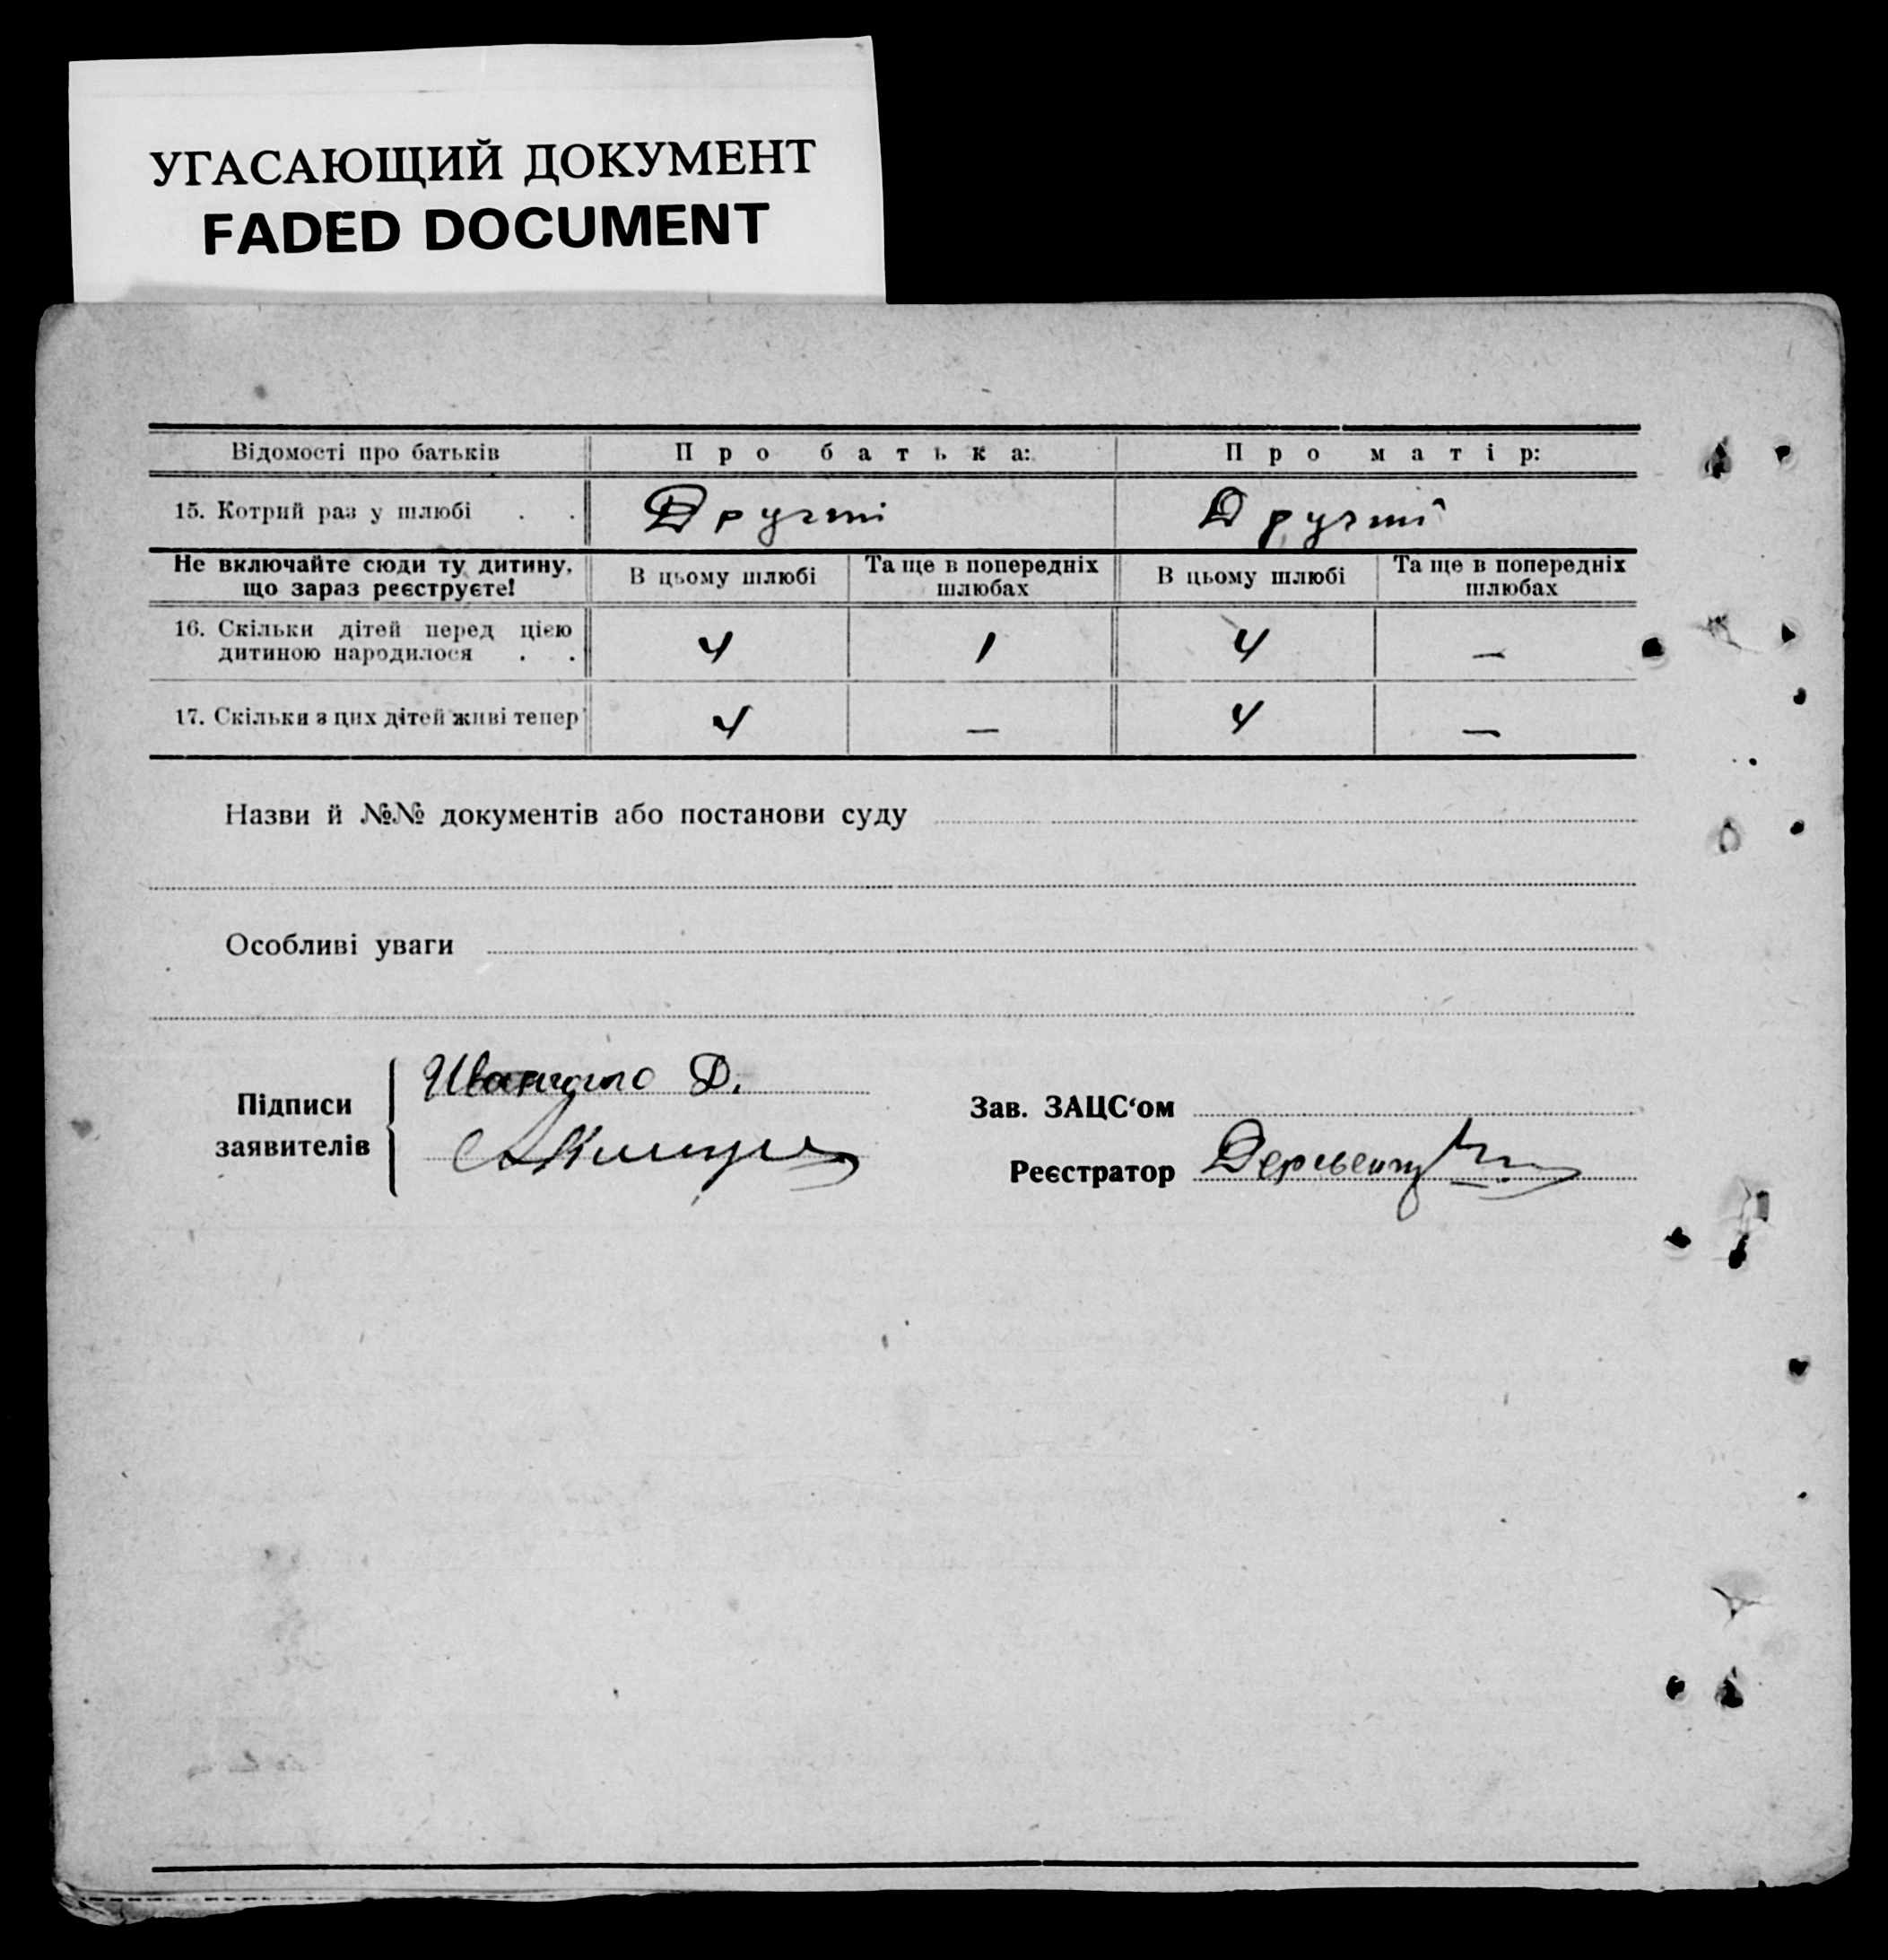 УГАСАЮЩИЙ ДОКУМЕНТ
FADED DOCUMENT
Відомості про батьків Про батька: Про матір:
15. Котрий раз у шлюбі . . Другий Другий
Не включайте сюди ту дитину, що зараз реєструєте! В цьому шлюбі Та ще в попередніх шлюбах В цьому шлюбі Та ще в попередніх шлюбах
16. Скільки дітей перед цією
дитиною народилося . . 4 1 4 —
17. Скільки з цих дітей живі тепер 4 — 4 —
Назви й №№ документів або постанови суду
Особливі уваги
Підписи
заявителів
Д.
Зав. ЗАЦС‘ом
Реєстратор